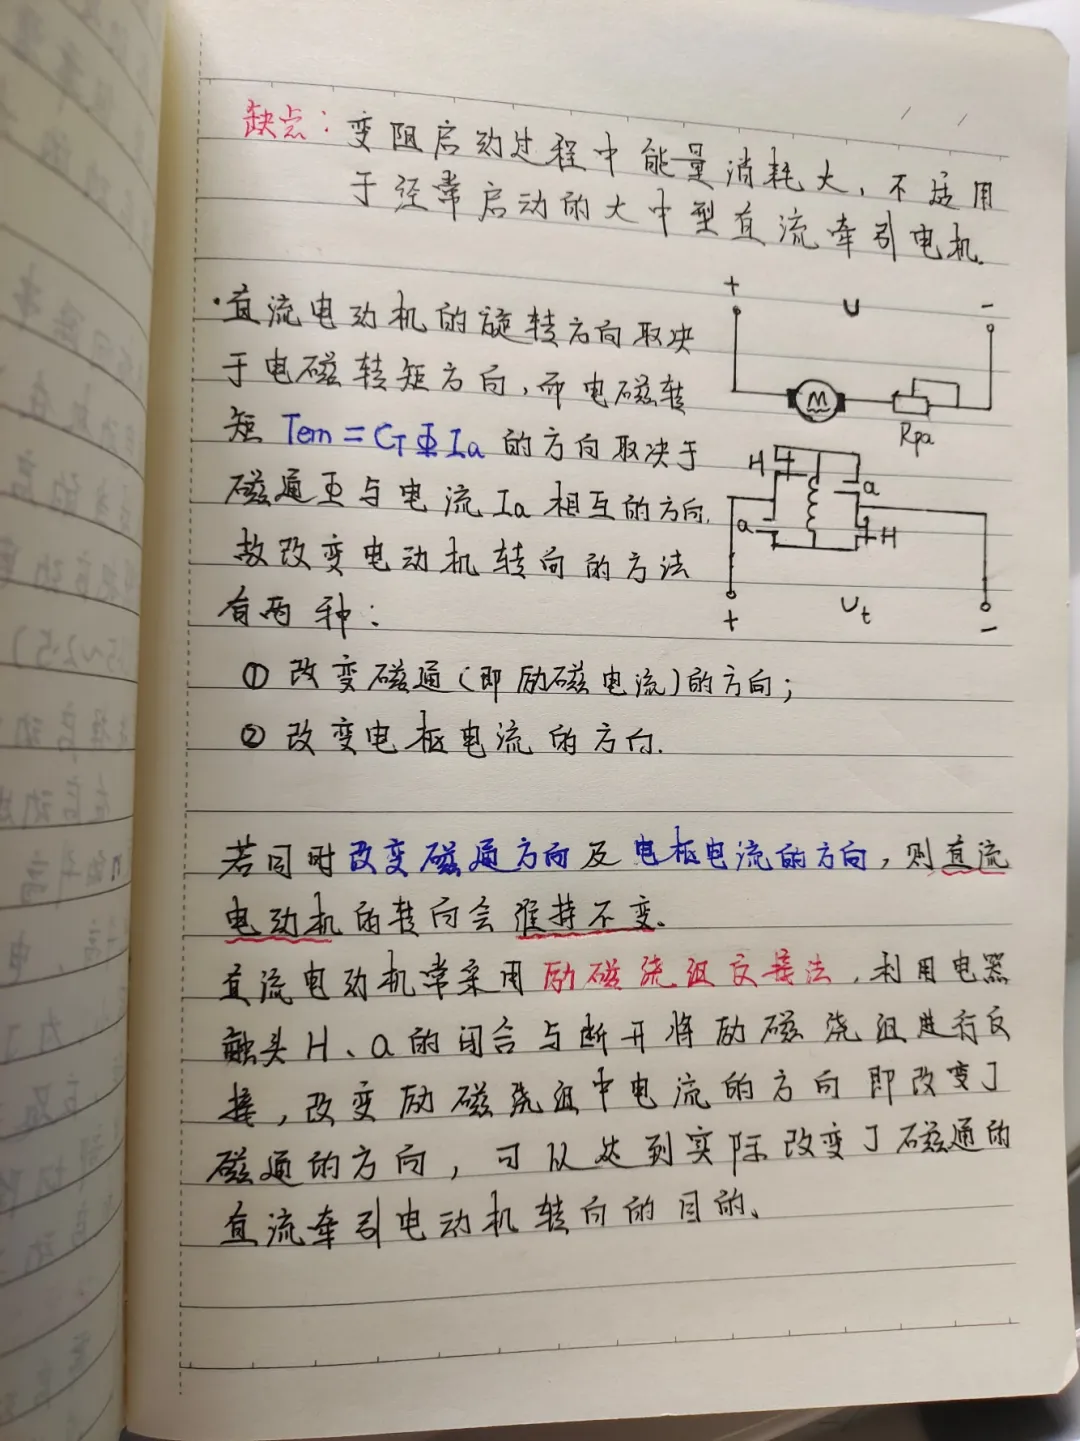 缺点：变阻启动过程中能量消耗大，不适用
于经常启动的大中型直流牵引电机.
·直流电动机的旋转方向取决
于电磁转矩方向，而电磁转
矩 Tem=CTΦIa 的方向取决于
磁通Φ与电流Ia相互的方向.
故改变电动机转向的方法
有两种：
① 改变磁通（即励磁电流）的方向；
② 改变电枢电流的方向.
+ U -
M
Rpa
H a
a H
+ Ut -
若同时改变磁通方向及电枢电流的方向，则直流
电动机的转向会维持不变.
直流电动机常采用励磁绕组反接法，利用电器
触头H、a的闭合与断开将励磁绕组进行反
接，改变励磁绕组中电流的方向即改变了
磁通的方向，可以达到实际改变了磁通的
直流牵引电动机转向的目的、